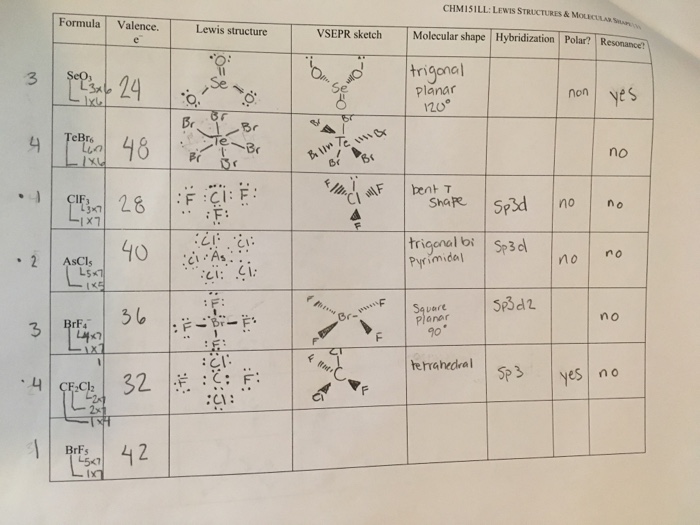 CHM151LL: LEWIS STRUCTURES & MOLECULAR
Formula Valence. e⁻ Lewis structure VSEPR sketch Molecular shape Hybridization Polar? Resonance?
3 SeO₃ 24 trigonal planar 120° non yes
3x6
1x6
:O: Se O O
O O Se O
4 TeBr₆ 48 no
1x6
Br Br Br Te Br Br Br
Br Br Te Br Br Br Br
1 ClF₃ 28 bent T shape Sp3d no no
3x7
1x7
:F: Cl: F:
:F:
F Cl F F
2 AsCl₅ 40 trigonal bi Pyrimidal Sp3d no no
5x7
1x5
:Cl: Cl:
:Cl: As.
:Cl: Cl:
3 BrF₄ 36 Square Planar 90° Sp3d2 no
4x7
1x7
:F:
:F-Br-F:
:F:
F F Br F F
4 CF₂Cl₂ 32 tetrahedral Sp3 yes no
2x7
2x7
1x4
:Cl:
:F: C: F:
:Cl:
Cl F C Cl F
1 BrF₅ 42
5x7
1x7